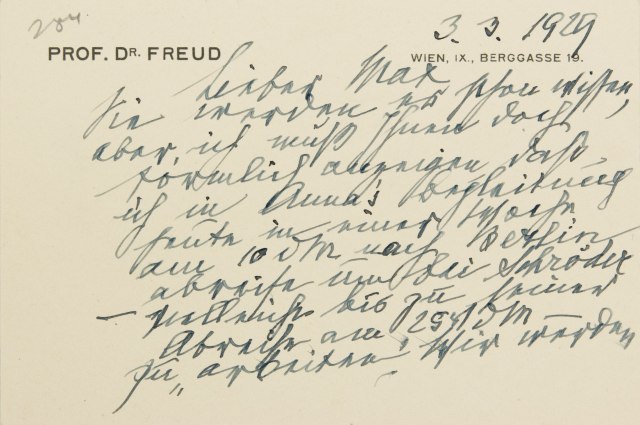 284
3. 3. 1929
PROF. DR. FREUD
WIEN, IX., BERGGASSE 19.
Lieber Max
Sie werden es schon wissen,
aber ich muß Ihnen doch
förmlich anzeigen daß
ich in Anna's Begleitung
heute in einer Woche
am 10 dM nach Berlin
abreise um bei Schröder
– vielleicht bis zu seiner
Abreise am 25t dM –
zu „arbeiten“. Wir werden